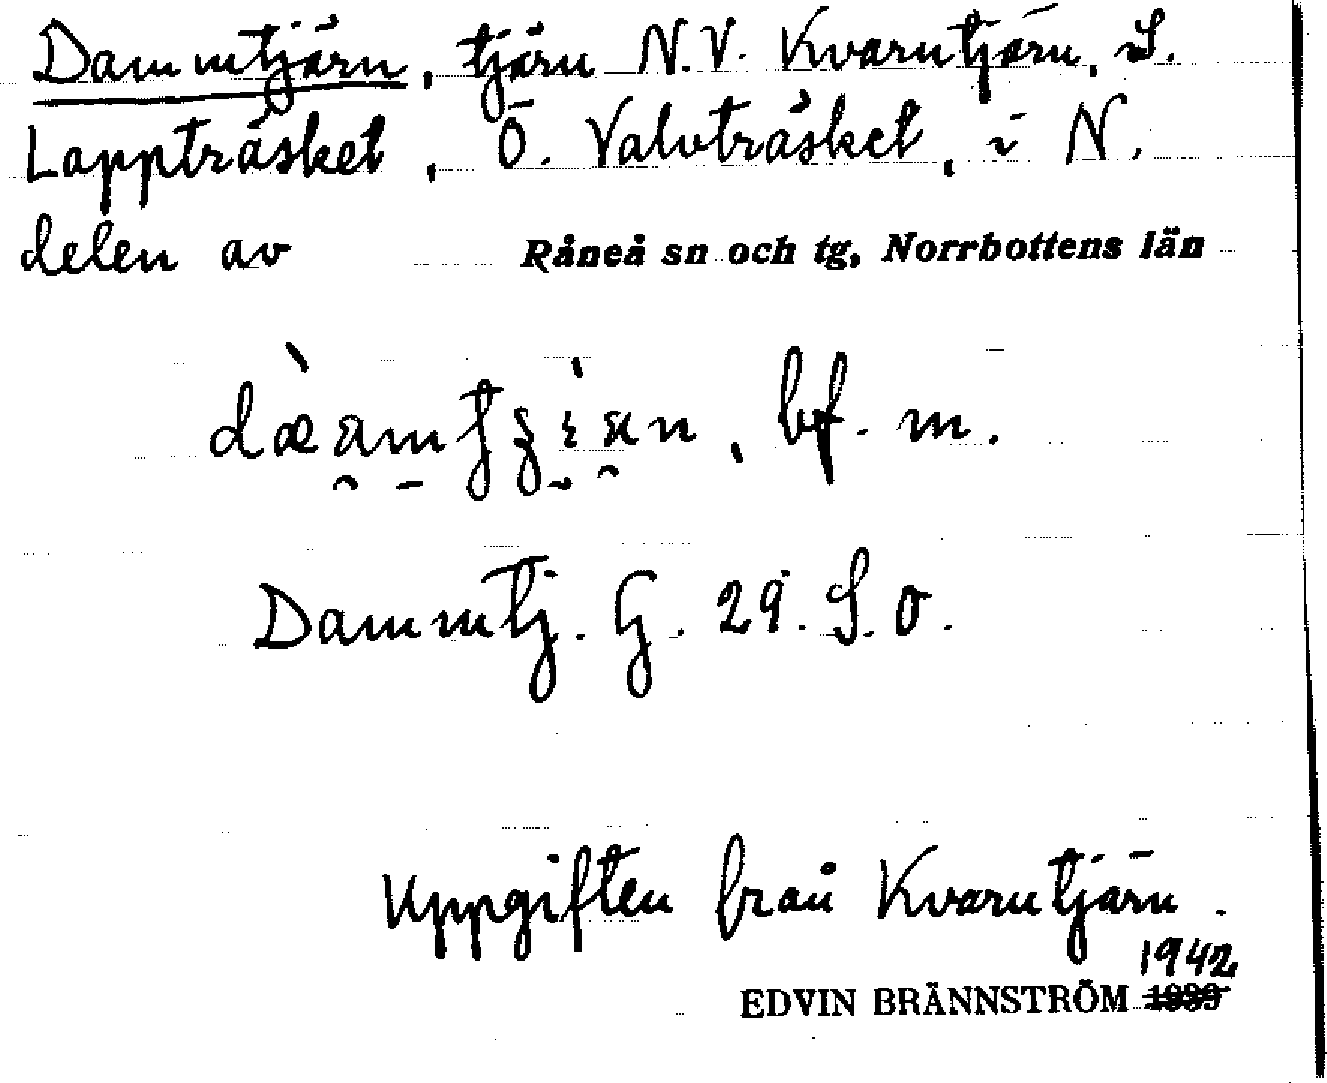 Dammtjärn, tjärn N.V. Kvarntjärn, S.
Lappträsket, Ö. Valvträsket, i N.
delen av Råneå sn och tg, Norrbottens län
bf. m.
Dammtj. G. 29. S.o.
Uppgiften från Kvarntjärn.
1942
EDVIN BRÄNNSTRÖM 1939